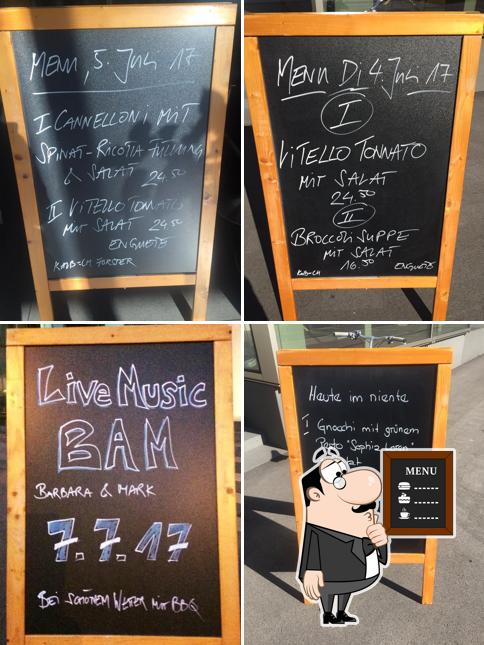 MENU, 5. Juli 17
I CANNELLONI MIT
SPINAT-RICOTTA FÜLLUNG
& SALAT 24.50
II VITELLO TONNATO
MIT SALAT 24.50
EN GUETE
KALB=CH FORSTER
MENU DI, 4. Juli 17
I
VITELLO TONNATO
MIT SALAT
24.50
II
BROCCOLI SUPPE
MIT SALAT
16.50 EN GUETE
KALB=CH
Live Music
BAM
BARBARA & MARK
7.7.17
BEI SCHÖNEM WETTER MIT BBQ
Heute im niente
I Gnocchi mit grünem
Pesto "Sophia Loren"
MENU